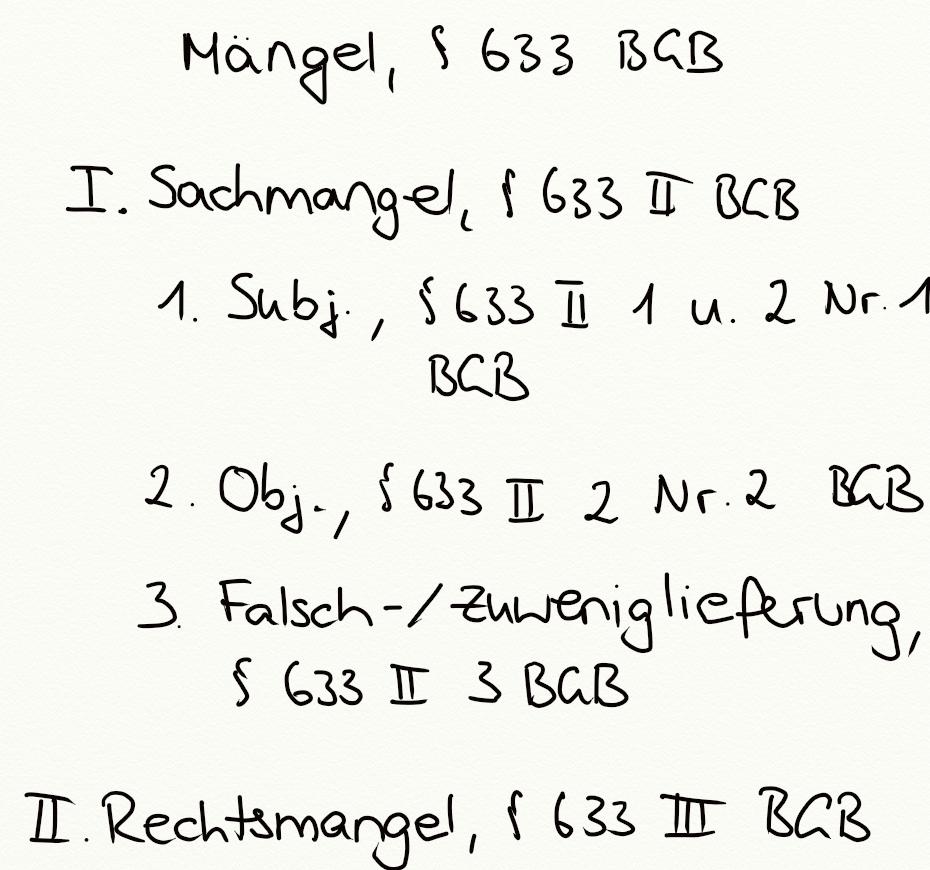 Mängel, § 633 BGB
I. Sachmangel, § 633 II BGB
1. Subj., § 633 II 1 u. 2 Nr. 1
BGB
2. Obj., § 633 II 2 Nr. 2 BGB
3. Falsch-/Zuweniglieferung,
§ 633 II 3 BGB
II. Rechtsmangel, § 633 III BGB